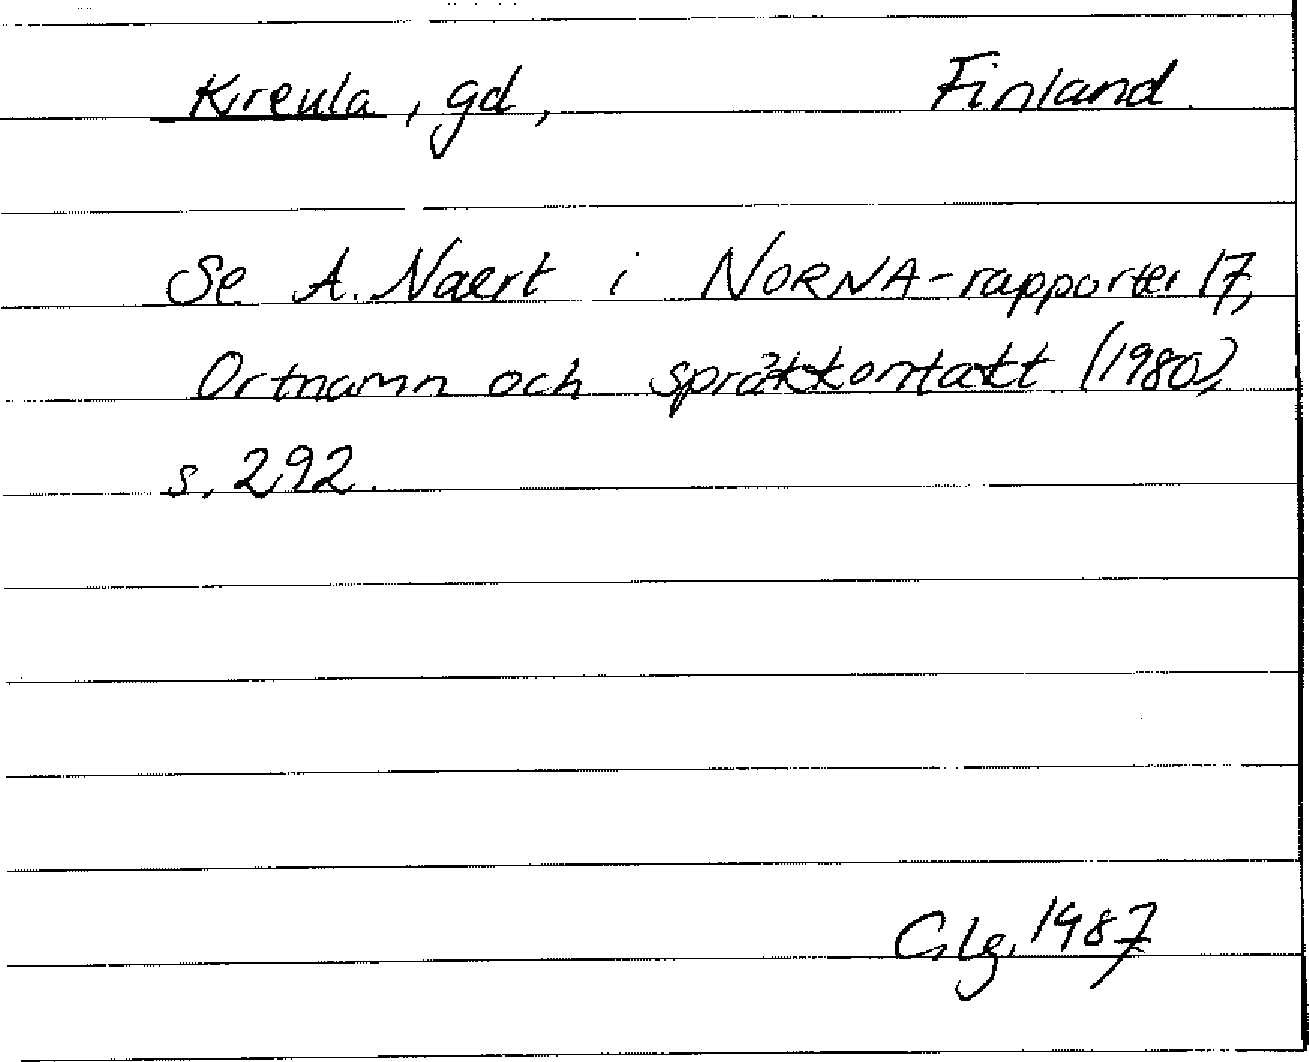 Kreula, gd, Finland.
Se A. Naert i NORNA-rapporter 17,
Ortnamn och språkkontakt (1980),
s. 292.
1987